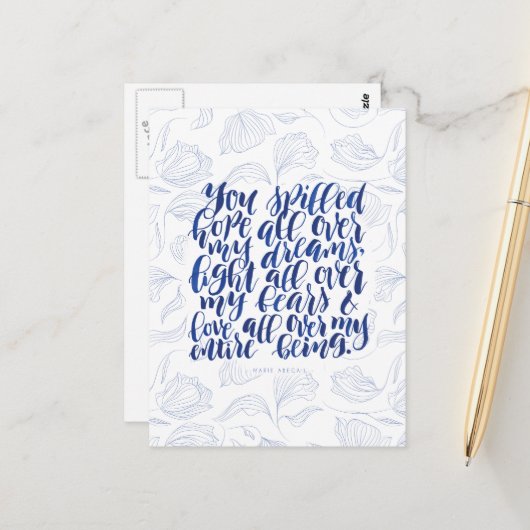 You spilled
hope all over
my dreams,
light all over
my fears &
love all over my
entire being.
- MARIE ABEGAIL -
zle